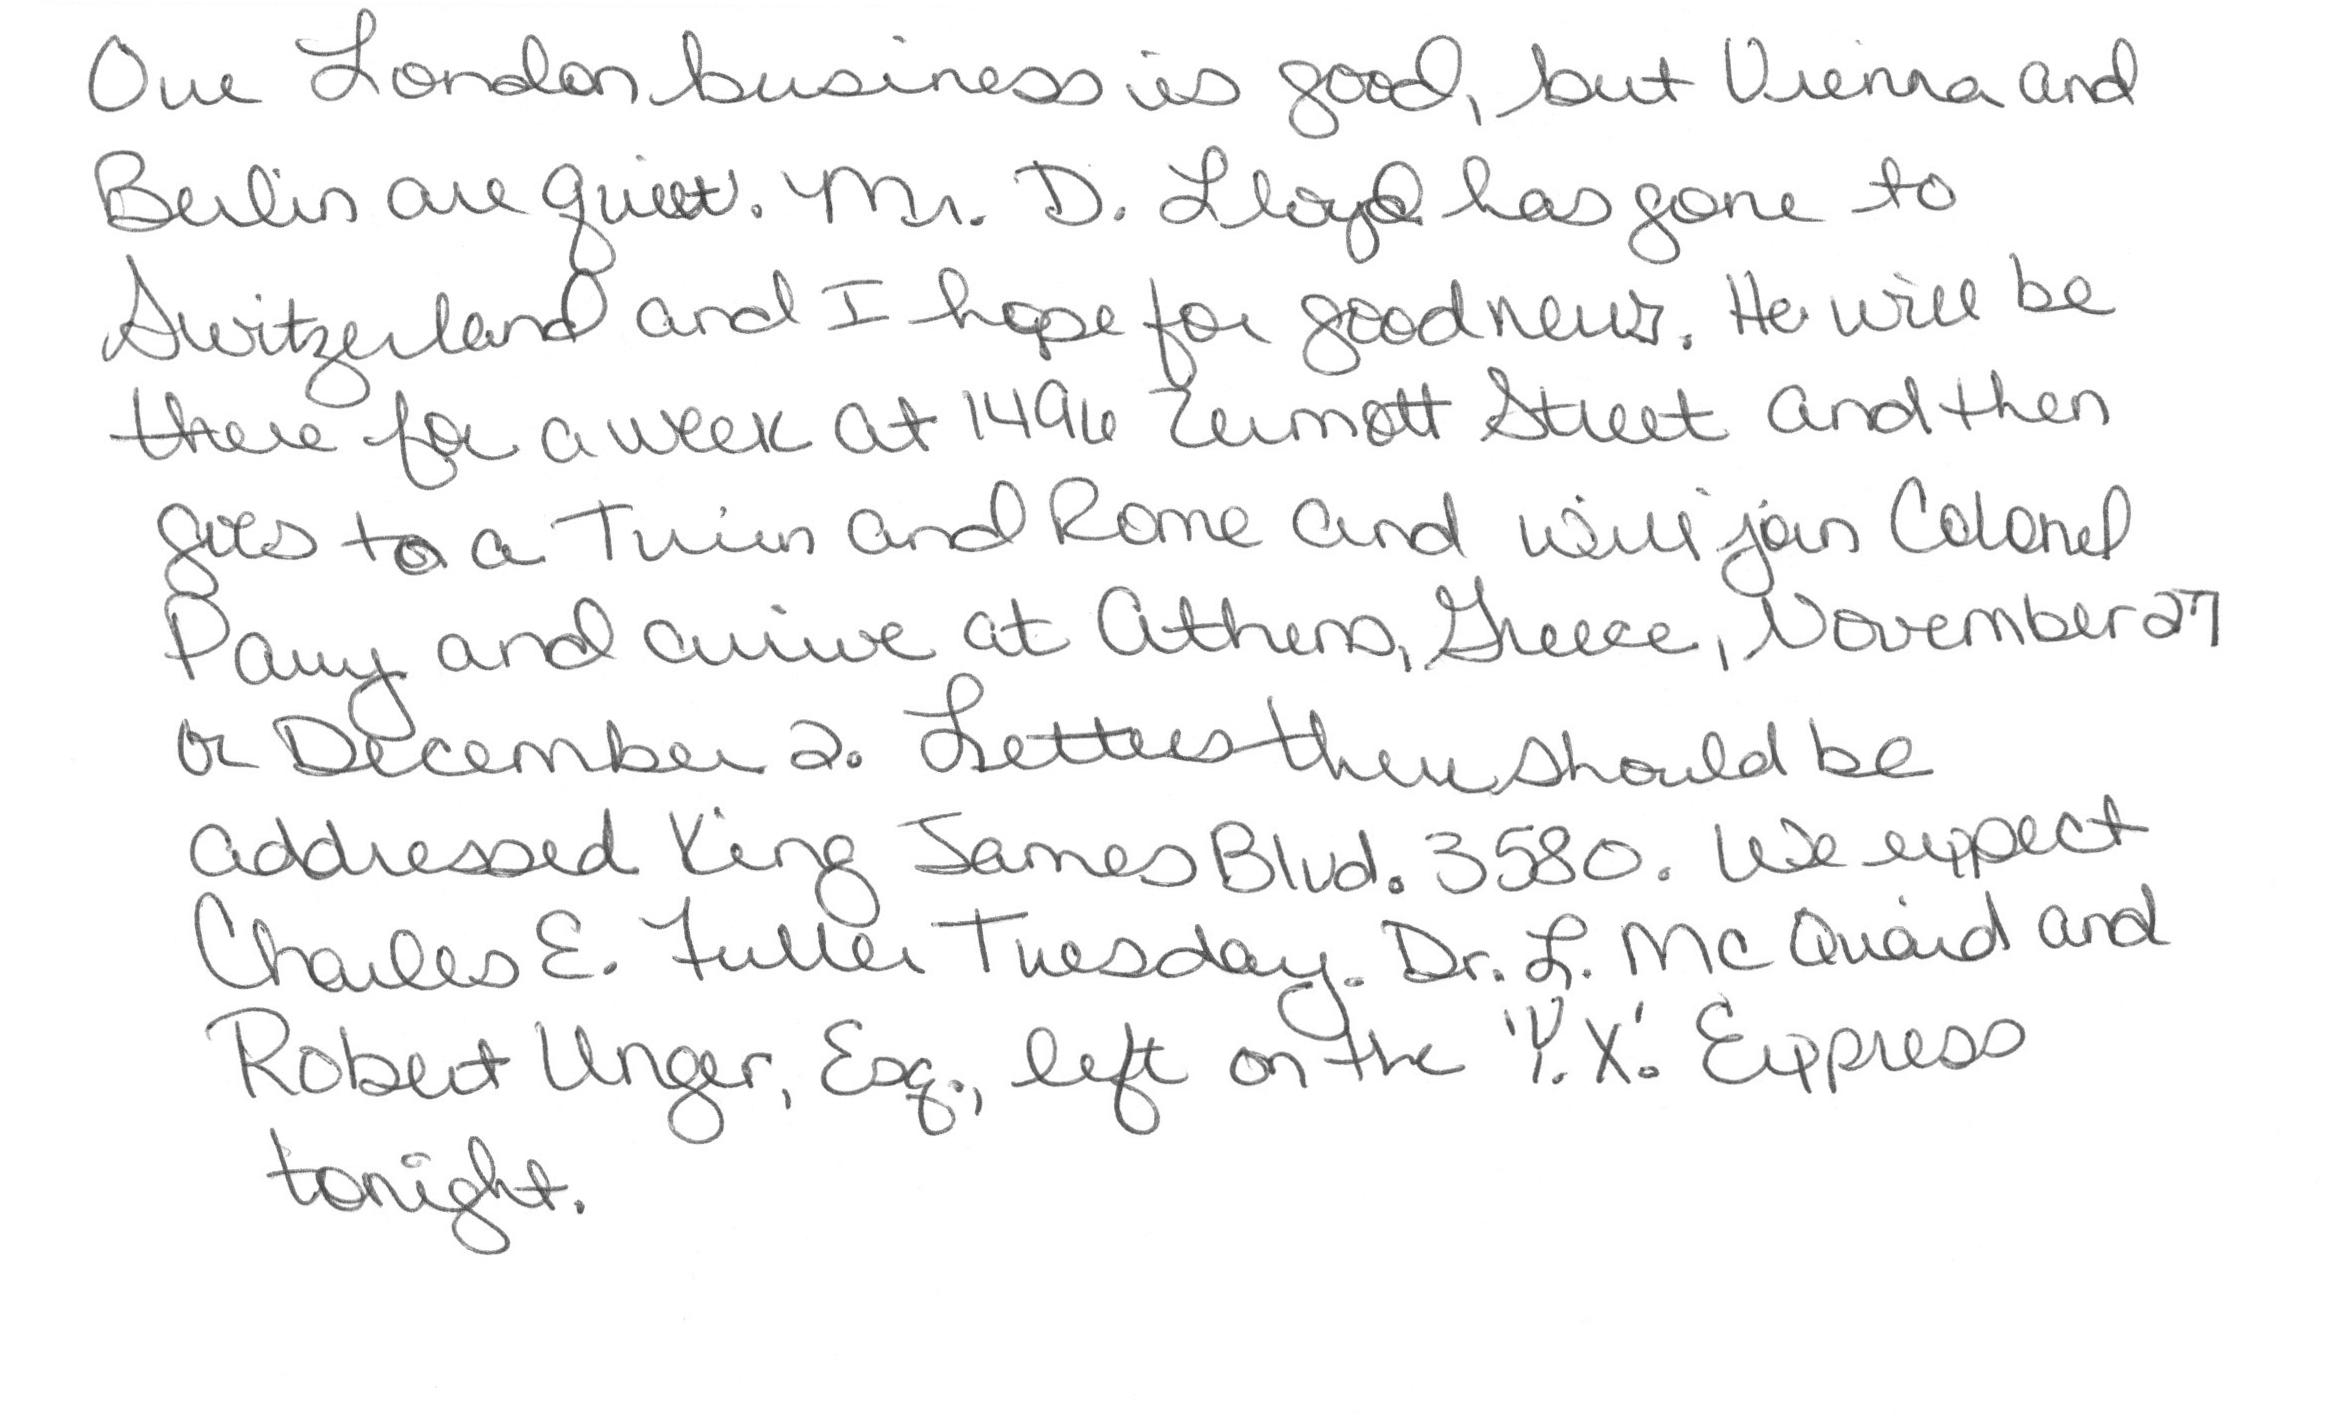 Our London business is good, but Vienna and
Berlin are quiet. Mr. D. Lloyd has gone to
Switzerland and I hope for good news. He will be
there for a week at 1496 Zermott Street and then
goes to a Turin and Rome and will join Colonel
Parry and arrive at Athens, Greece, November 27
or December 2. Letters there should be
addressed King James Blvd. 3580. We expect
Charles E. Fuller Tuesday. Dr. L. McQuaid and
Robert Unger, Esq., left on the 'Y.X.' Express
tonight.